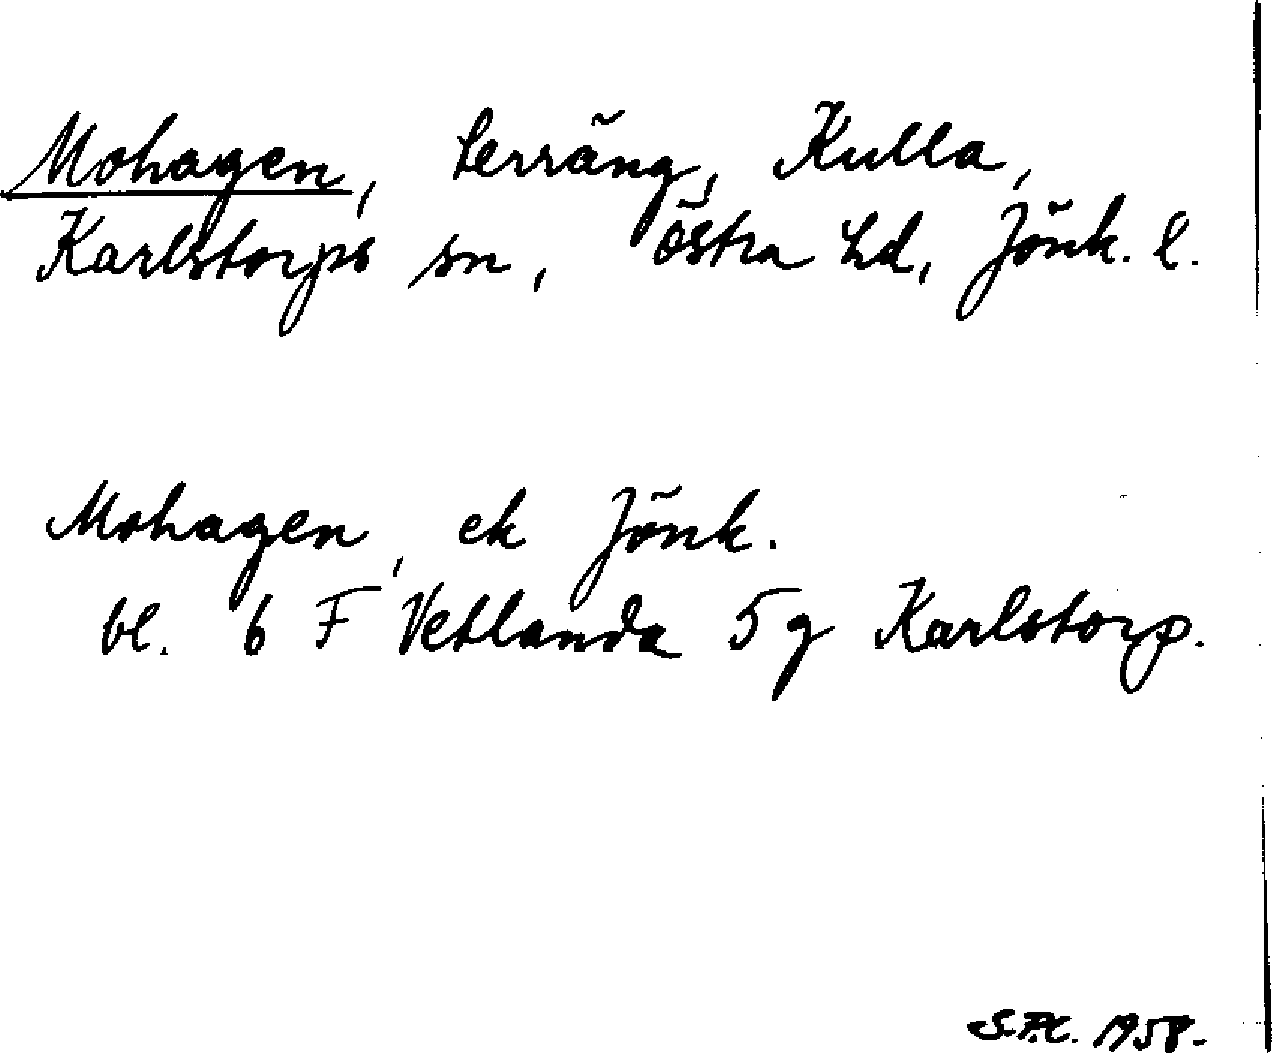 Mohagen, terräng, Kulla,
Karlstorps sn, östra hd, Jönk. l.
Mohagen, ek Jönk.
bl. 6 F Vetlanda 5g Karlstorp.
S.F.C. 1958.